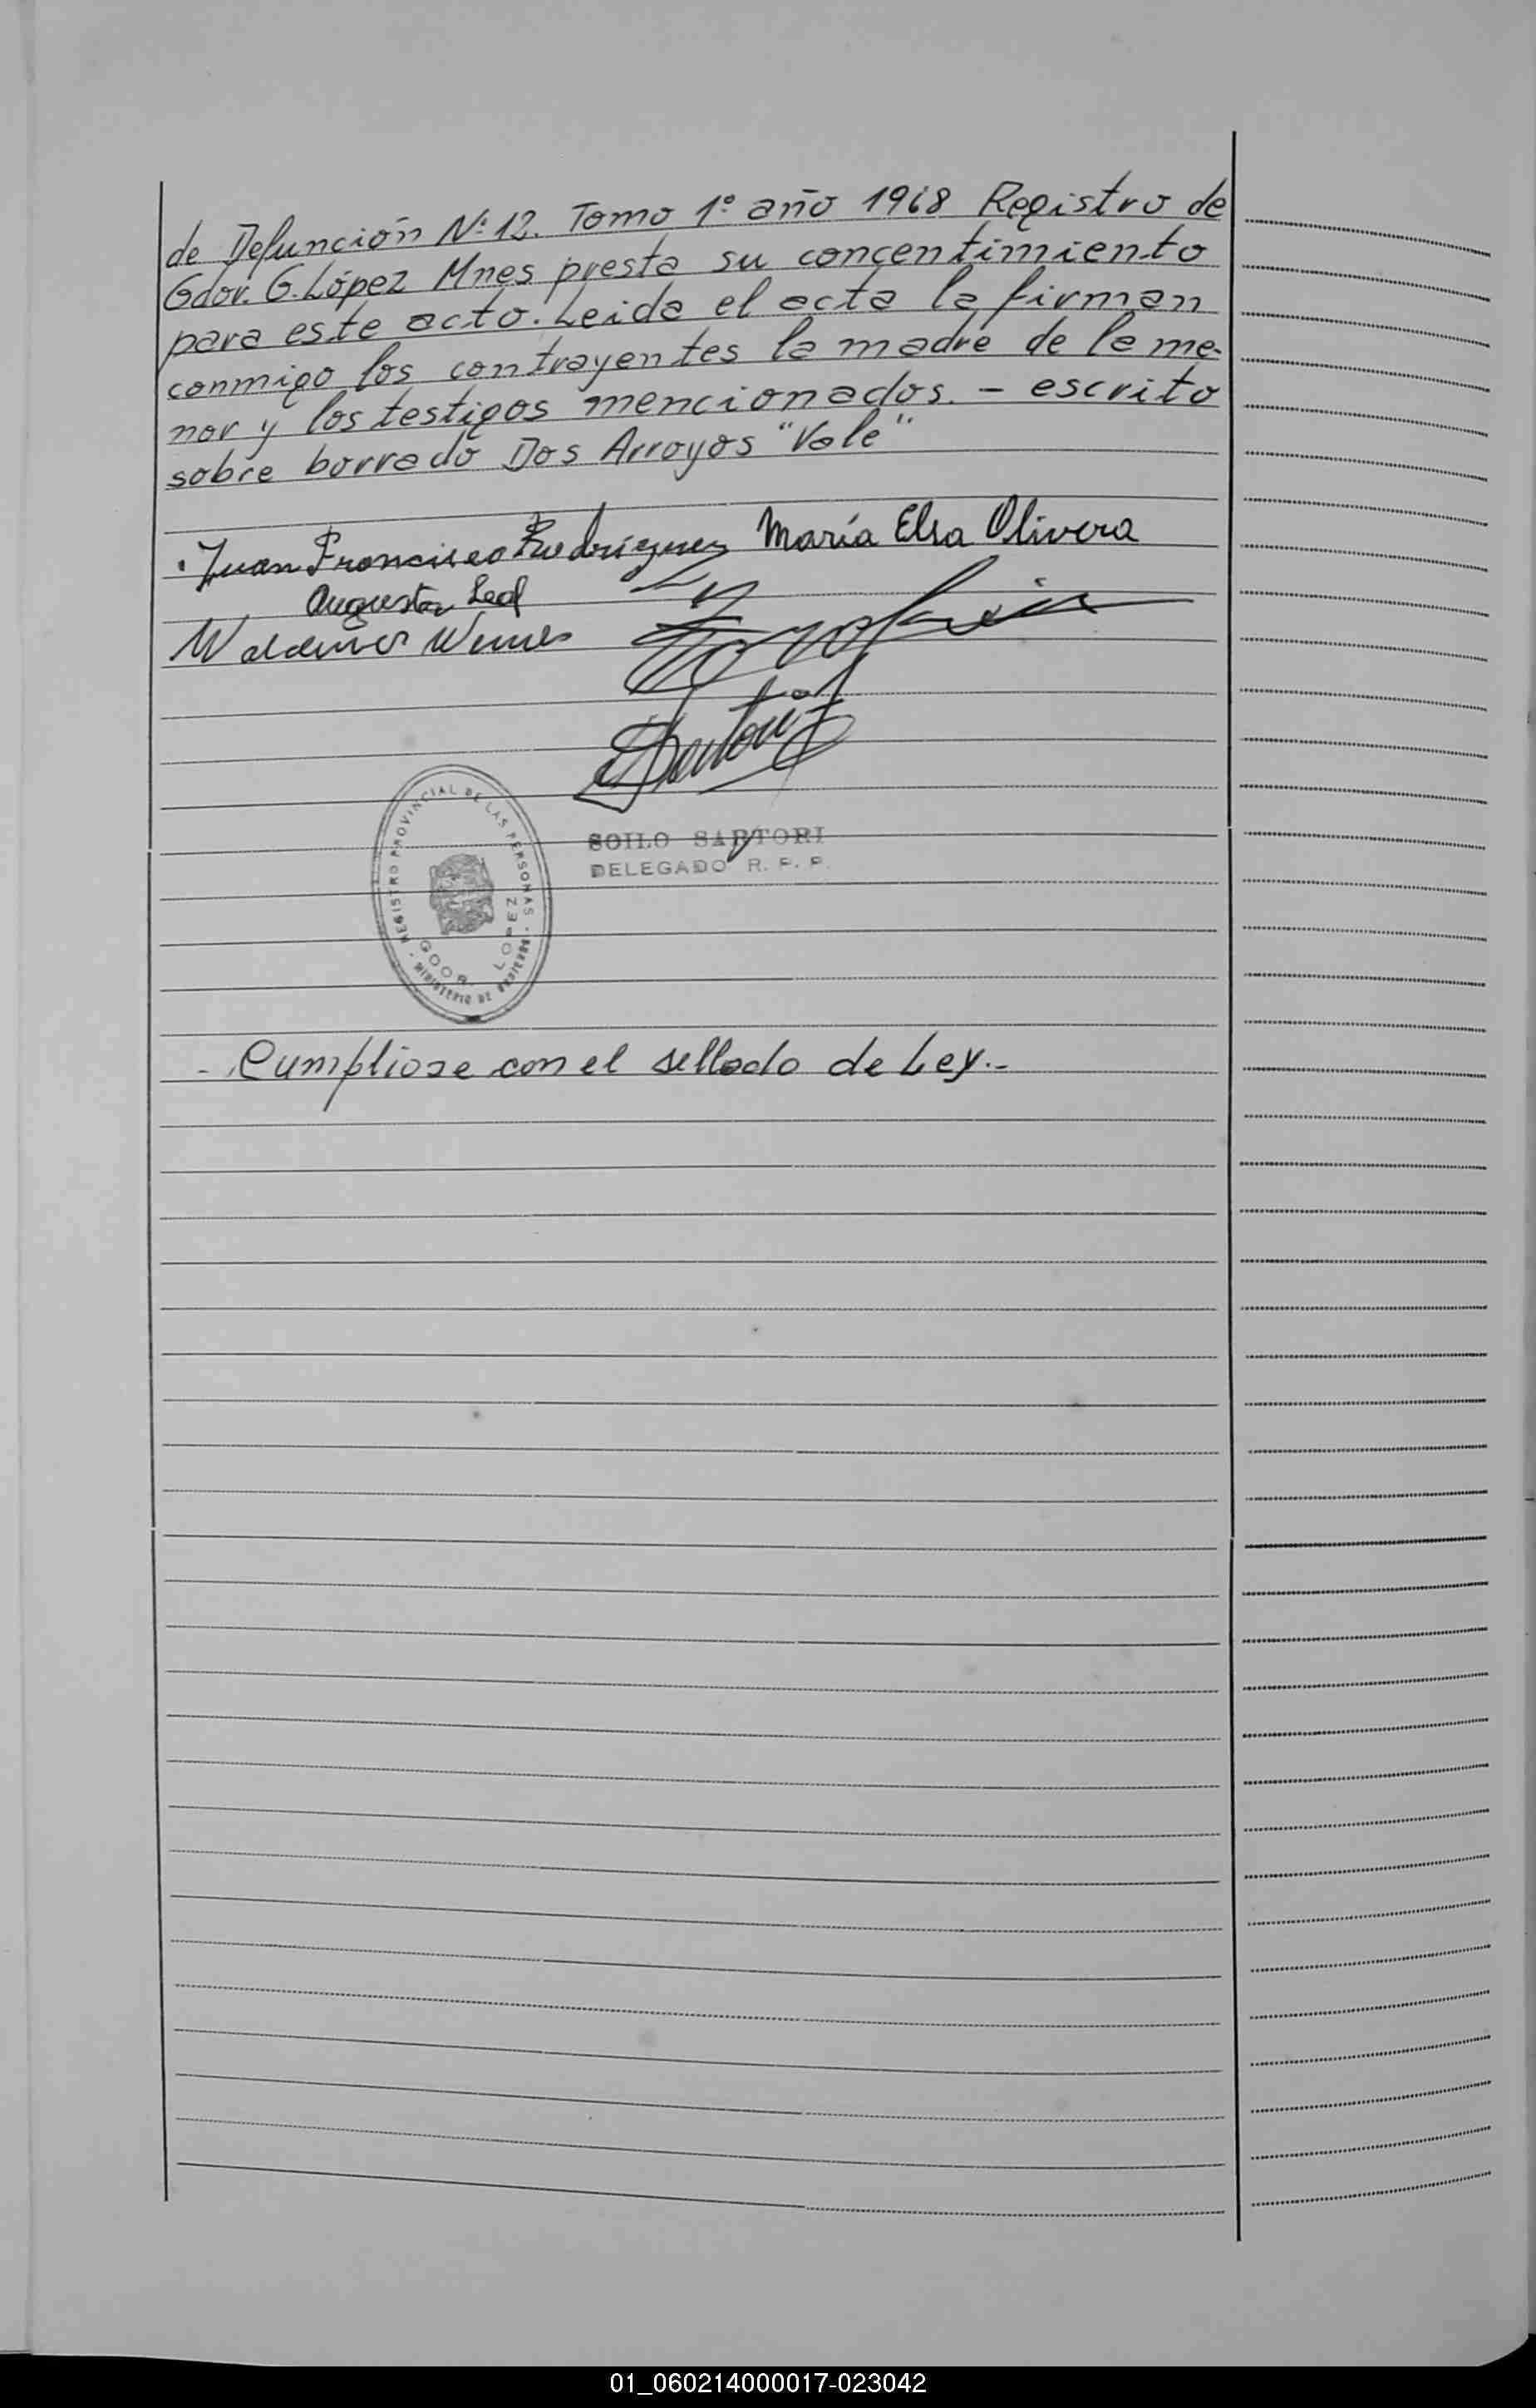 de Defunción Nº 12. Tomo 1º año 1968 Registro de
Gdor. G. López Mnes presta su concentimiento
para este acto. Leida el acta la firman
conmigo los contrayentes la madre de la me-
nor y los testigos mencionados. - escrito
sobre borrado Dos Arroyos "Vale"
Juan Francisco Rodriguez María Elsa Olivera
Augusta Leal
Waldemar
Sartori
REGISTRO PROVINCIAL DE LAS PERSONAS - MINISTERIO DE GOBIERNO -
GDOR. LOPEZ
SOILO SARTORI
DELEGADO R. P. P.
- Cumpliose con el sellado de Ley.-
01_060214000017-023042